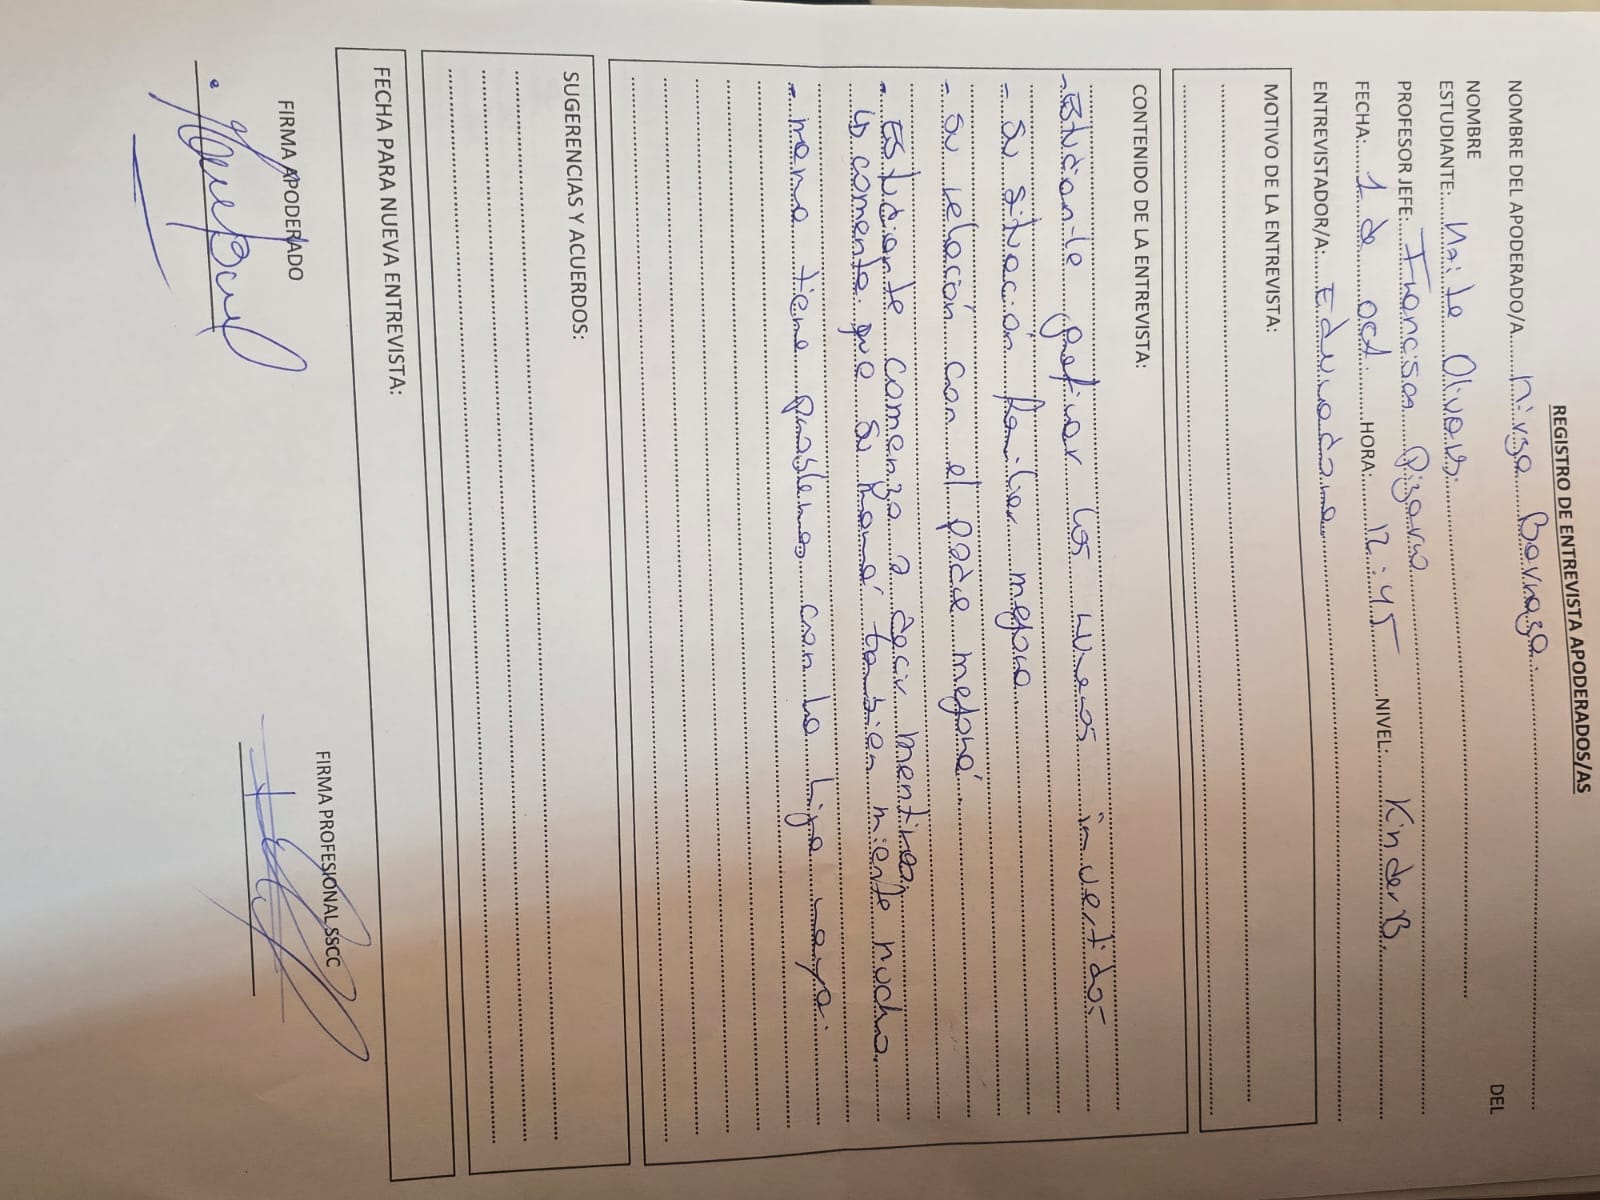 REGISTRO DE ENTREVISTA APODERADOS/AS
NOMBRE DEL APODERADO/A Nirza Barraza.
NOMBRE DEL
ESTUDIANTE: Naite Olivares.
PROFESOR JEFE: Francisca Pizarro
FECHA: 1 de oct. HORA: 12:45 NIVEL: Kinder B.
ENTREVISTADOR/A: Educadora
MOTIVO DE LA ENTREVISTA:
CONTENIDO DE LA ENTREVISTA:
- Estudiante los invertidos
- Su situación familiar mejora
- Su relación con el padre mejoró.
- Estudiante comenzo a decir mentiras,
comenta que su mamá tambien miente mucho.
- mama tiene problemas con la hija mayor.
SUGERENCIAS Y ACUERDOS:
FECHA PARA NUEVA ENTREVISTA:
FIRMA APODERADO FIRMA PROFESIONAL SSCC